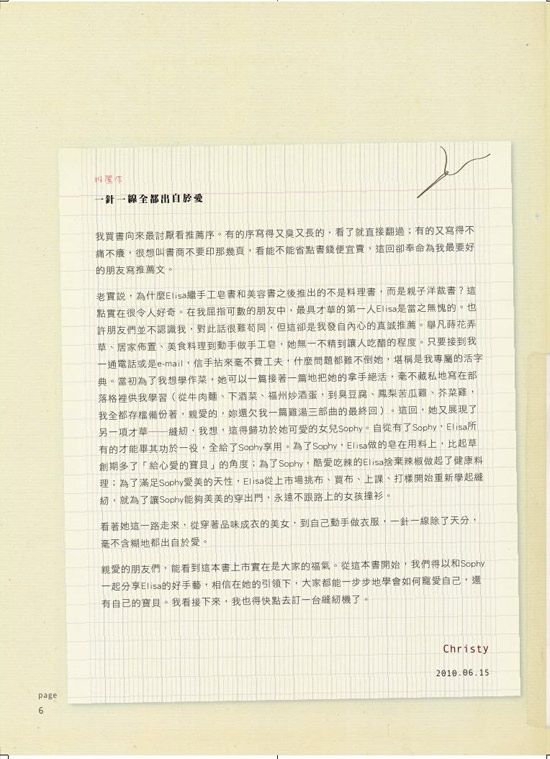 推薦序
一針一線全都出自於愛
我買書向來最討厭看推薦序。有的序寫得又臭又長的，看了就直接翻過；有的又寫得不
痛不癢，很想叫書商不要印那幾頁，看能不能省點書錢便宜賣，這回卻奉命為我最要好
的朋友寫推薦文。
老實說，為什麼Elisa繼手工皂書和美容書之後推出的不是料理書，而是親子洋裁書？這
點實在很令人好奇。在我屈指可數的朋友中，最具才華的第一人Elisa是當之無愧的。也
許朋友們並不認識我，對此話很難苟同，但這卻是我發自內心的真誠推薦。舉凡蒔花弄
草、居家佈置、美食料理到動手做手工皂，她無一不精到讓人吃醋的程度。只要接到我
一通電話或是e-mail，信手拈來毫不費工夫，什麼問題都難不倒她，堪稱是我專屬的活字
典。當初為了我想學作菜，她可以一篇接著一篇地把她的拿手絕活，毫不藏私地寫在部
落格裡供我學習（從牛肉麵、下酒菜、福州炒酒蛋，到臭豆腐、鳳梨苦瓜雞、芥菜雞，
我全都存檔備份著，親愛的，妳還欠我一篇雞湯三部曲的最終回）。這回，她又展現了
另一項才華——縫紉，我想，這得歸功於她可愛的女兒Sophy。自從有了Sophy，Elisa所
有的才能畢其功於一役，全給了Sophy享用。為了Sophy，Elisa做的皂在用料上，比起草
創期多了「給心愛的寶貝」的角度；為了Sophy，酷愛吃辣的Elisa捨棄辣椒做起了健康料
理；為了滿足Sophy愛美的天性，Elisa從上市場挑布、買布、上課、打樣開始重新學起縫
紉，就為了讓Sophy能夠美美的穿出門，永遠不跟路上的女孩撞衫。
看著她這一路走來，從穿著品味成衣的美女，到自己動手做衣服，一針一線除了天分，
毫不含糊地都出自於愛。
親愛的朋友們，能看到這本書上市實在是大家的福氣。從這本書開始，我們得以和Sophy
一起分享Elisa的好手藝，相信在她的引領下，大家都能一步步地學會如何寵愛自己，還
有自己的寶貝。我看接下來，我也得快點去訂一台縫紉機了。
Christy
2010.06.15
page
6